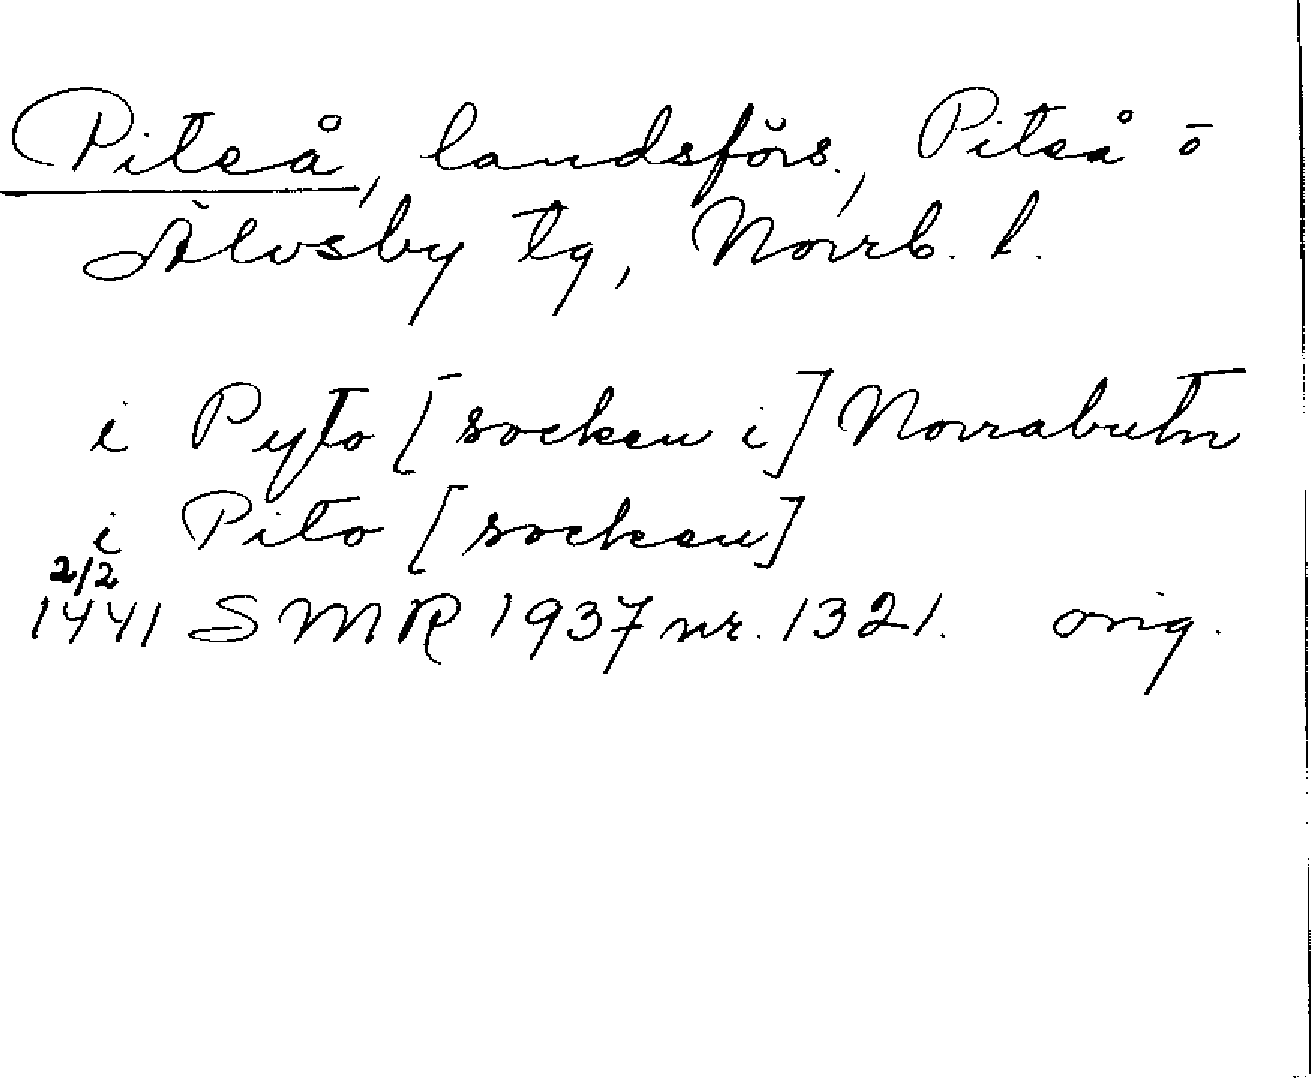 Piteå, landsförs., Piteå o
Älvsby tg, Norrb. l.
i Pyto [socken i] Norrabutn
i Pito [socken]
2/2
1441 SMR 1937 nr. 1321. orig.